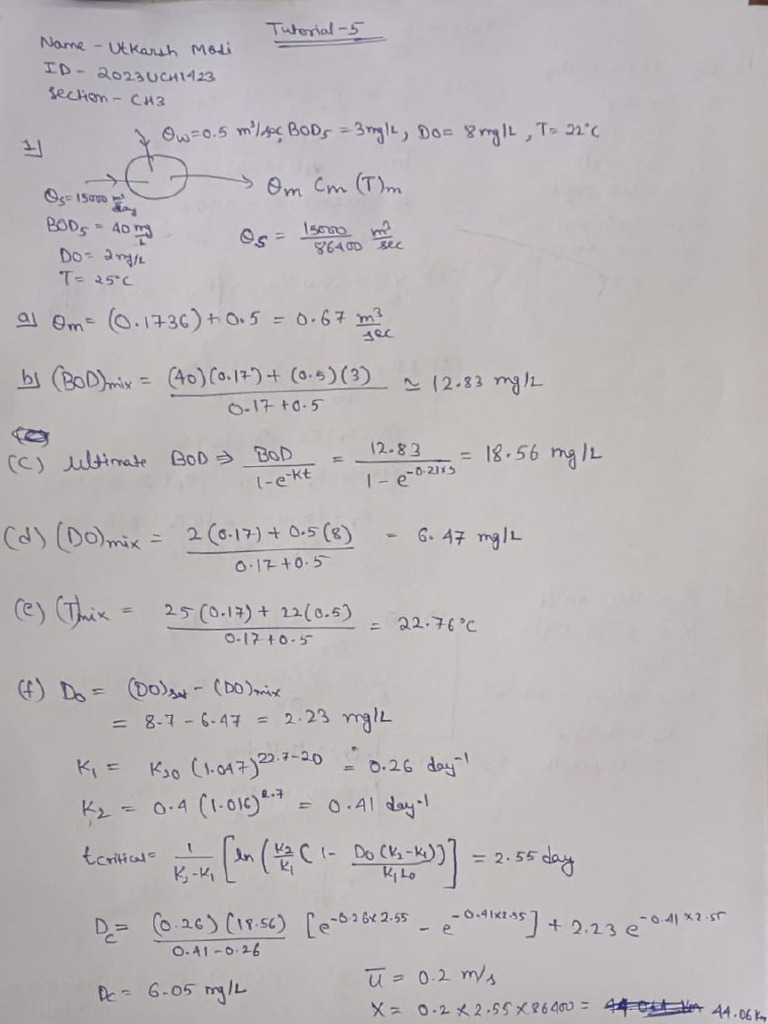 Tutorial-5
Name - Utkarsh Modi
ID - 2023UCH1423
Section - CH3
1) Qw = 0.5 m³/sec, BOD₅ = 3mg/L, DO = 8 mg/L, T = 22°C
Qm Cm (T)m
Qs = 15000 m³/day
BOD₅ = 40 mg/L
DO = 2mg/L
T = 25°C
Qs = 15000/86400 m³/sec
a) Qm = (0.1736) + 0.5 = 0.67 m³/sec
b) (BOD)mix = ((40)(0.17) + (0.5)(3))/(0.17 + 0.5) ≃ 12.83 mg/L
(c) Ultimate BOD ⇒ BOD/(1-e^-Kt) = 12.83/(1 - e^-0.23x5) = 18.56 mg/L
(d) (DO)mix = (2(0.17) + 0.5(8))/(0.17 + 0.5) = 6.47 mg/L
(e) (T)mix = (25(0.17) + 22(0.5))/(0.17 + 0.5) = 22.76°C
(f) Do = (DO)sat - (DO)mix
= 8.7 - 6.47 = 2.23 mg/L
K₁ = K₂₀ (1.047)^22.7-20 = 0.26 day⁻¹
K₂ = 0.4 (1.016)^2.7 = 0.41 day⁻¹
tcritical = 1/(K₂-K₁) [ln (K₂/K₁ (1 - Do(K₂-K₁)/K₁Lo))] = 2.55 day
Dc = (0.26)(18.56)/(0.41 - 0.26) [e^-0.26x2.55 - e^-0.41x2.55] + 2.23 e^-0.41x2.55
Dc = 6.05 mg/L
u̅ = 0.2 m/s
X = 0.2 x 2.55 x 86400 = 44.06 Km